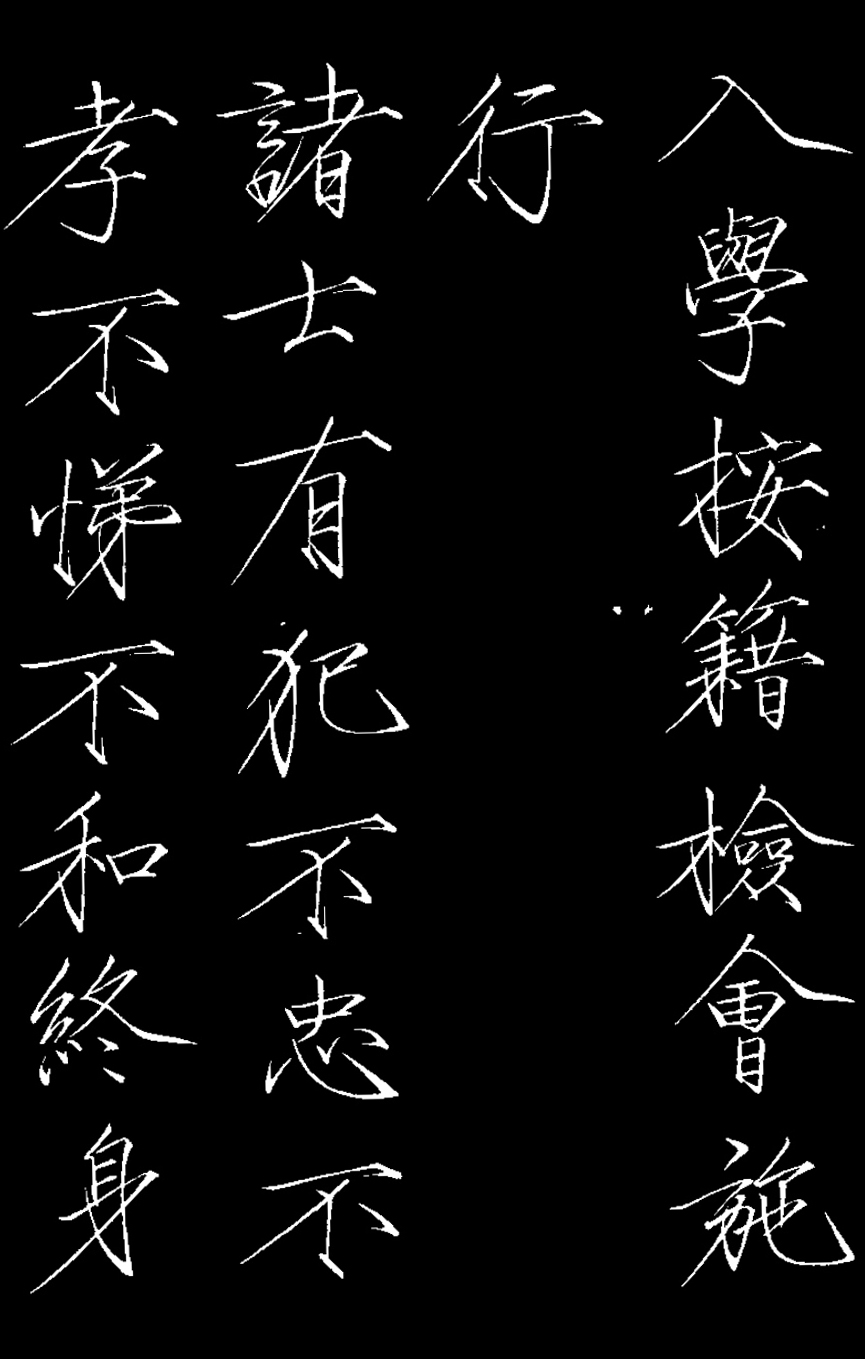 入學按籍檢會施
行
諸士有犯不忠不
孝不悌不和終身